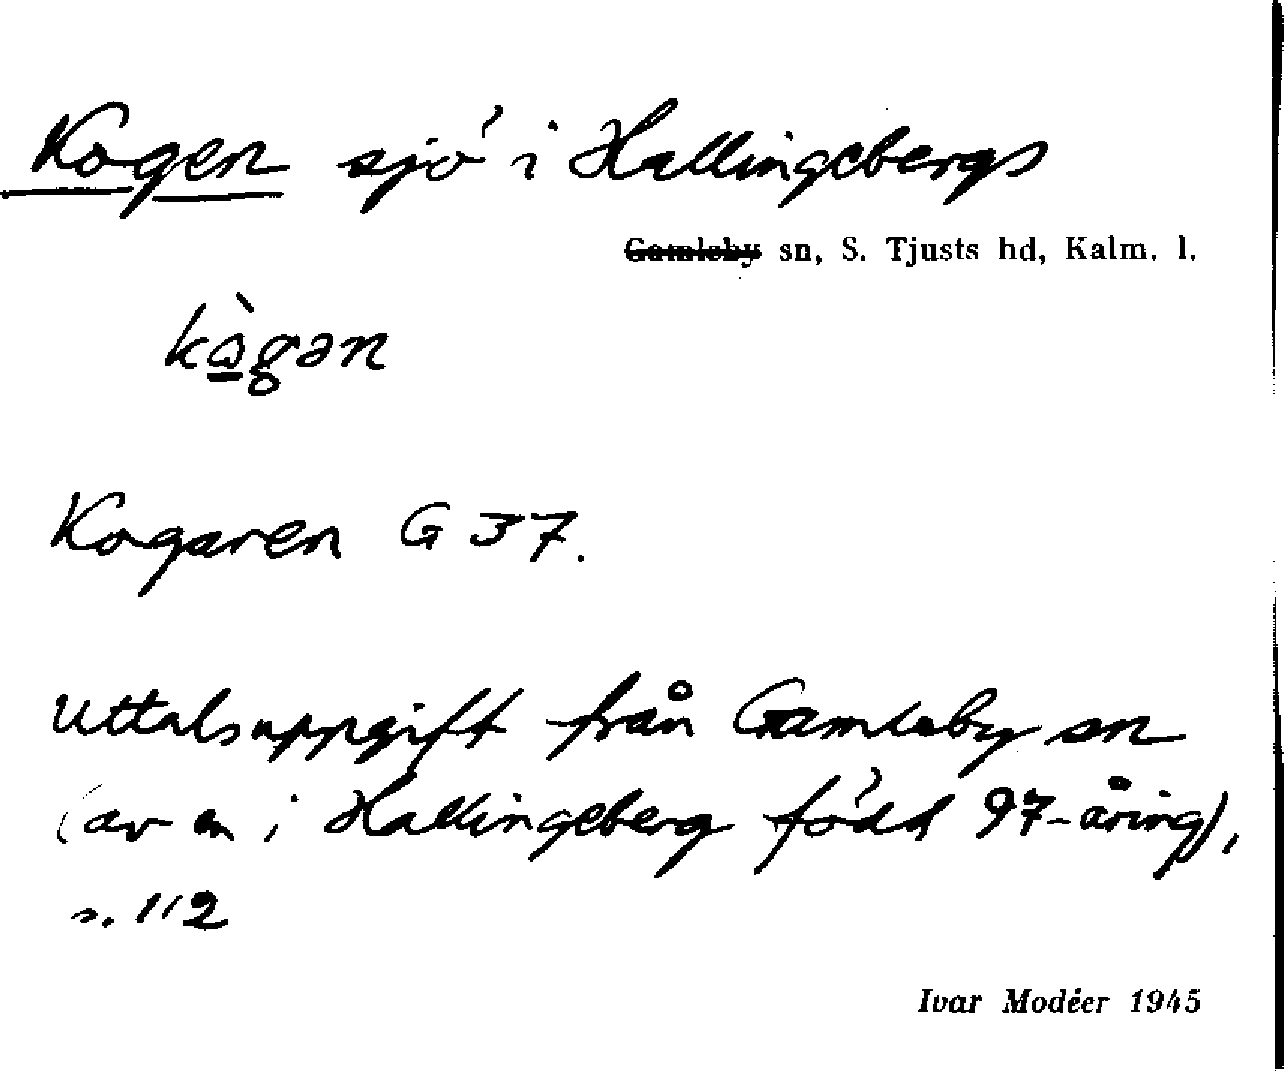 Kogen sjö i Hallingebergs
Gamleby sn, S. Tjusts hd, Kalm. l.
kògən
Kogaren G 37.
Uttalsuppgift från Gamleby sn
(av en i Hallingeberg född 97-åring),
s. 112
Ivar Modéer 1945